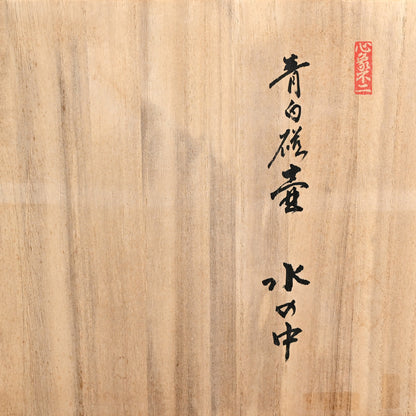 心象不二
青白磁壷 水の中